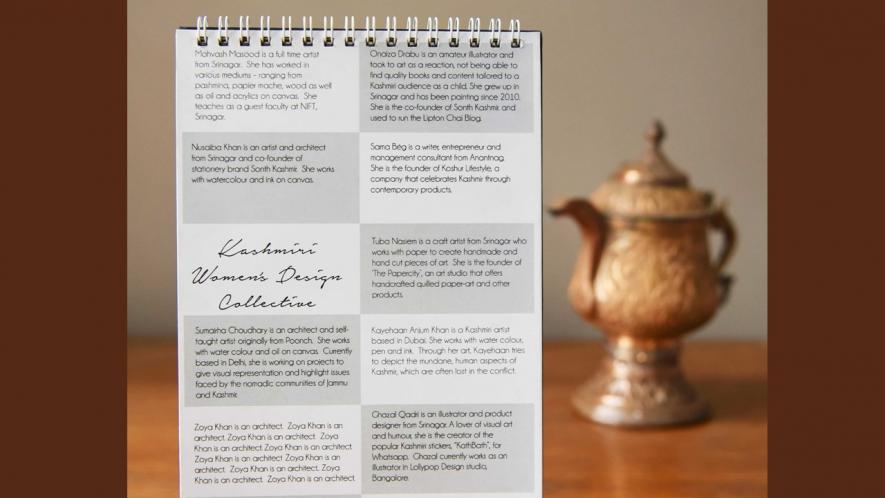 Mahvash Masood is a full time artist
from Srinagar. She has worked in
various mediums – ranging from
pashmina, papier mache, wood as well
as oil and acrylics on canvas. She
teaches as a guest faculty at NIFT,
Srinagar.
Onaiza Drabu is an amateur illustrator and
took to art as a reaction, not being able to
find quality books and content tailored to a
Kashmiri audience as a child. She grew up in
Srinagar and has been painting since 2010.
She is the co-founder of Sonth Kashmir and
used to run the Lipton Chai Blog.
Nusaiba Khan is an artist and architect
from Srinagar and co-founder of
stationery brand Sonth Kashmir. She works
with watercolour and ink on canvas.
Sama Bég is a writer, entrepreneur and
management consultant from Anantnag.
She is the founder of Koshur Lifestyle, a
company that celebrates Kashmir through
contemporary products.
Kashmiri
Women's Design
Collective
Tuba Nasiem is a craft artist from Srinagar who
works with paper to create handmade and
hand cut pieces of art. She is the founder of
'The Papercity', an art studio that offers
handcrafted quilled paper-art and other
products.
Sumaiha Choudhary is an architect and self-
taught artist originally from Poonch. She works
with water colour and oil on canvas. Currently
based in Delhi, she is working on projects to
give visual representation and highlight issues
faced by the nomadic communities of Jammu
and Kashmir.
Kayehaan Anjum Khan is a Kashmiri artist
based in Dubai. She works with water colour,
pen and ink. Through her art, Kayehaan tries
to depict the mundane, human aspects of
Kashmir, which are often lost in the conflict.
Zoya Khan is an architect. Zoya Khan is an
architect. Zoya Khan is an architect. Zoya
Khan is an architect. Zoya Khan is an
architect Zoya Khan is an architect. Zoya
Khan is an architect. Zoya Khan is an
architect. Zoya Khan is an architect. Zoya
Khan is an architect. Zoya Khan is an architect
Ghazal Qadri is an illustrator and product
designer from Srinagar. A lover of visual art
and humour, she is the creator of the
popular Kashmiri stickers, "KathBath", for
Whatsapp. Ghazal currently works as an
illustrator in Lollypop Design studio,
Bangalore.